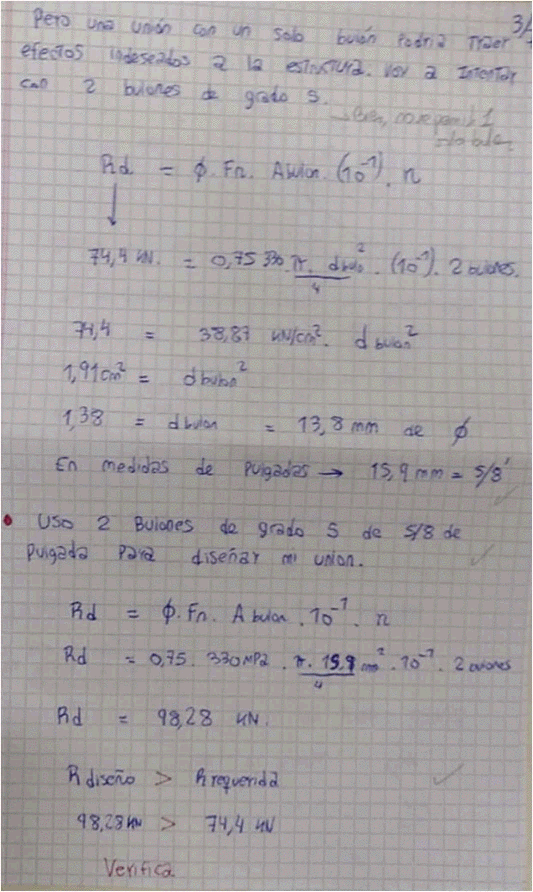 3/
Pero una unión con un solo bulón Podria Traer
efectos indeseados a la estructura. Voy a Intentar
con 2 bulones de grado 5.
1
Rd = ϕ. Fn. A bulon. (10⁻¹). n
74,4 kN. = 0,75 330 π. d bulo² . (10⁻¹). 2 bulones.
4
74,4 = 38,87 kN/cm². d bulon²
1,91 cm² = d bulon²
1,38 = d bulon = 13,8 mm de ϕ
En medidas de Pulgadas → 15,9 mm = 5/8'
• USO 2 Bulones de grado 5 de 5/8 de
Pulgada Para diseñar mi union.
Rd = ϕ. Fn. A bulon . 10⁻¹ . n
Rd = 0,75 . 330 MPa . π. 15,9 ² . 10⁻¹ . 2 bulones
4
Rd = 98,28 kN.
R diseño > R requerida
98,28 kN > 74,4 kN
Verifica